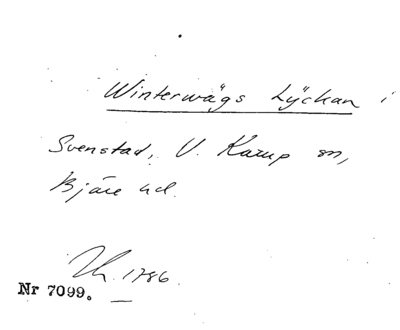 Winterwägs Lÿckan i
Svenstad, V. Karup sn,
Bjäre hd.
1786.
Nr 7099.